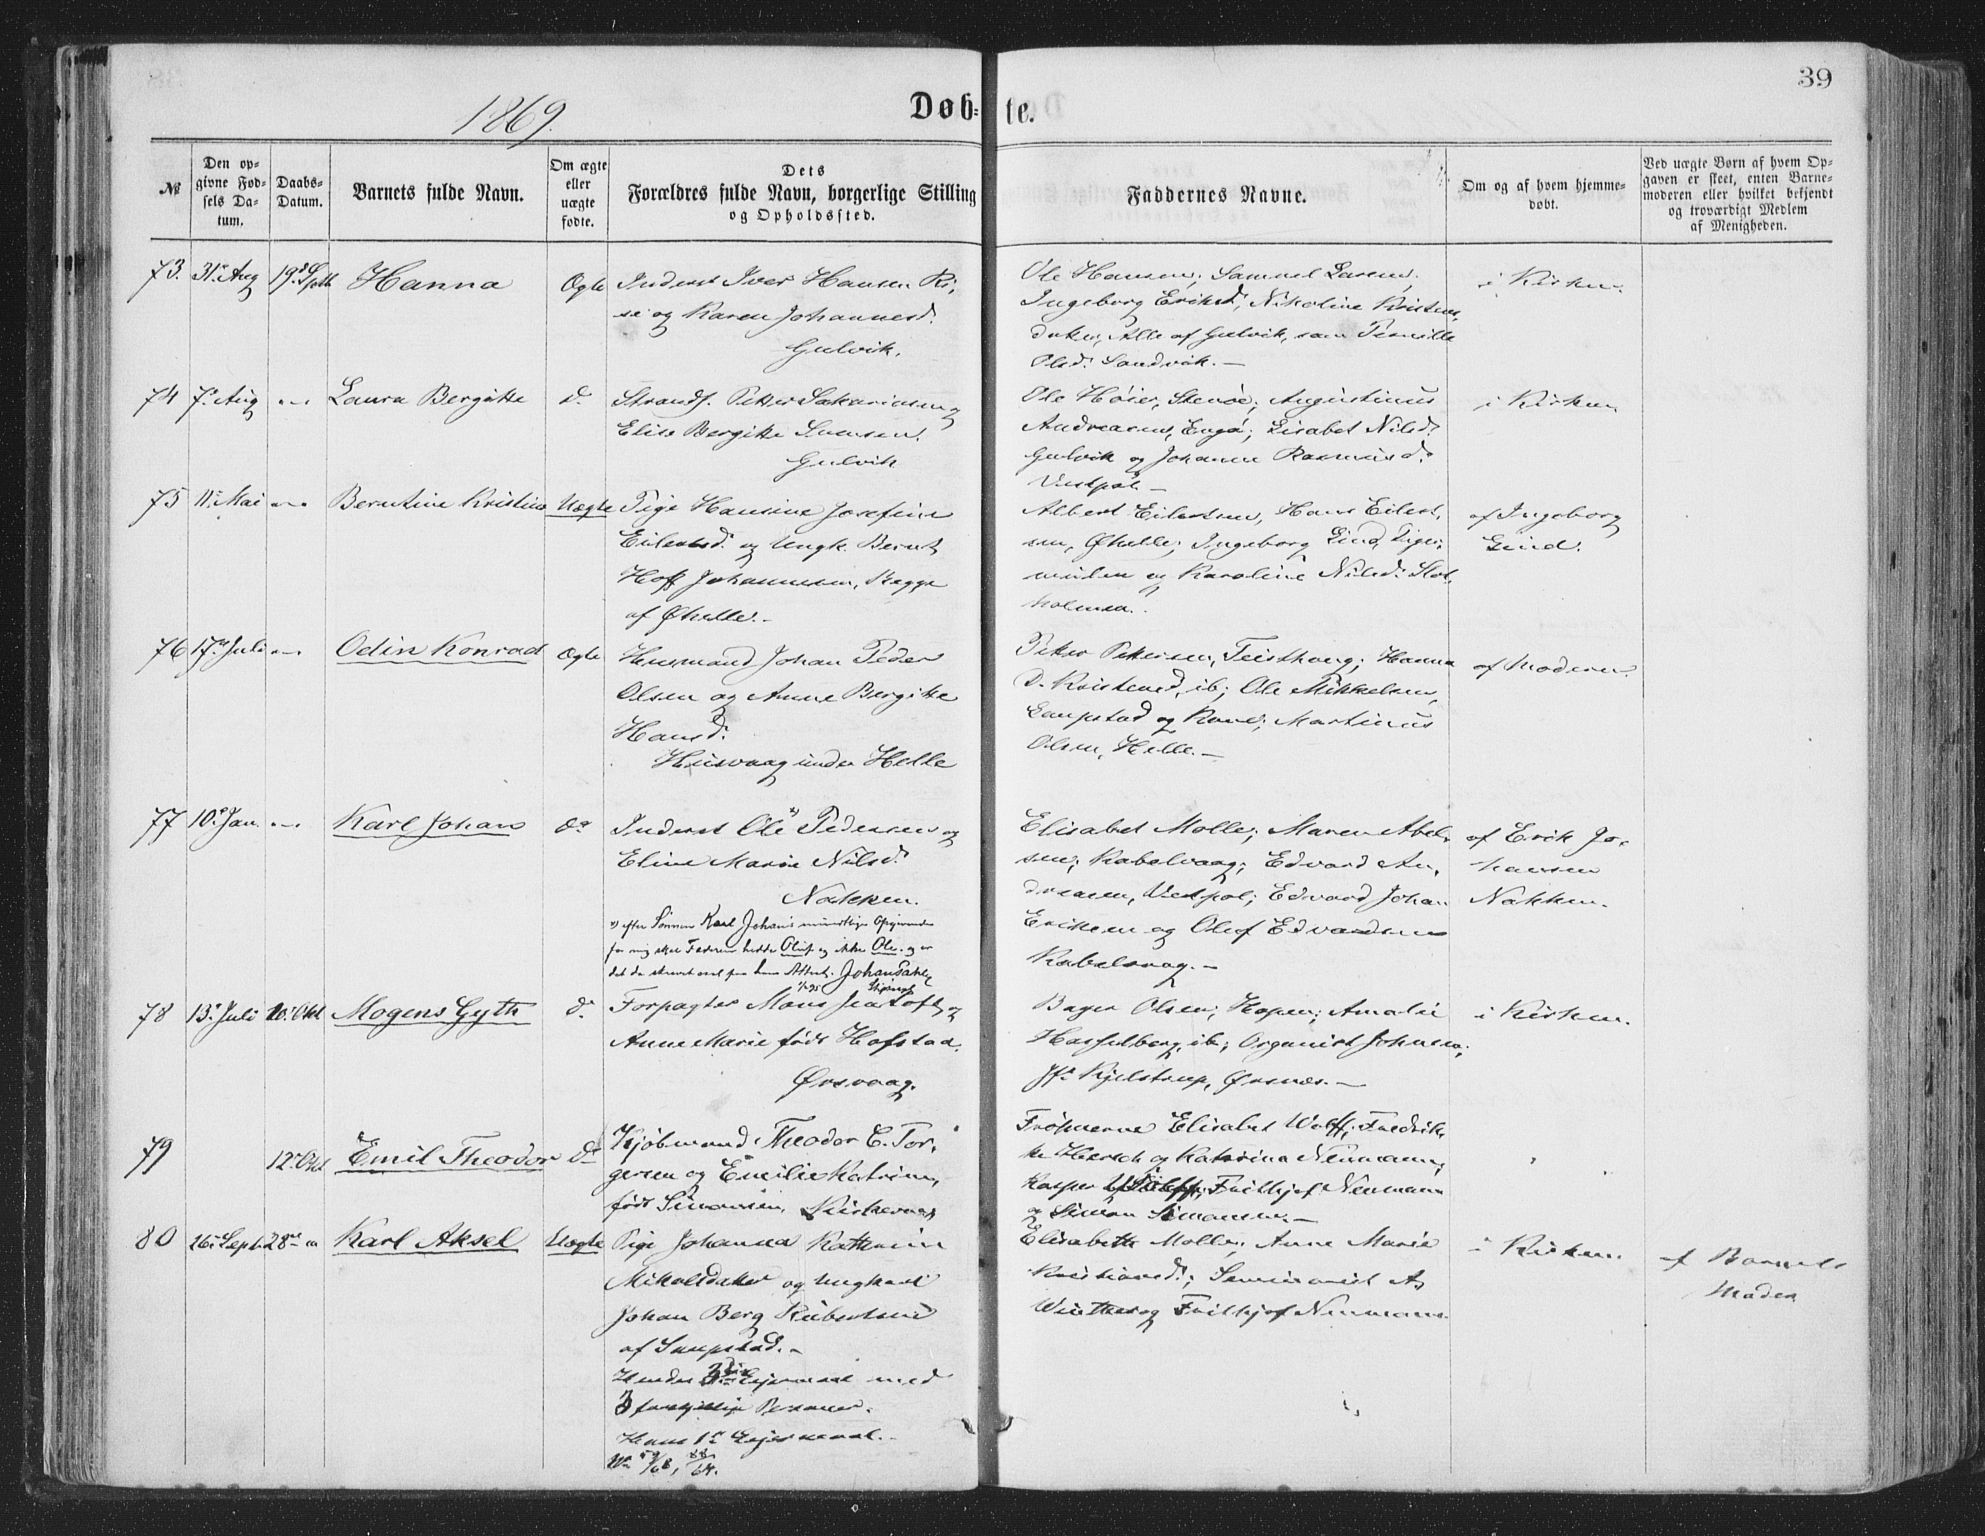 39
1869.
Døb- te.
№
Den opgivne Fødsels Datum.
Daabs-Datum.
Barnets fulde Navn.
Om ægte eller uægte fødte.
Dets Forældres fulde Navn, borgerlige Stilling og Opholdssted.
Faddernes Navne.
Om og af hvem hjemmedøbt.
Ved uægte Børn af hvem Opgaven er skeet, enten Barnemoderen eller hvilket bekjendt og troværdigt Medlem af Menigheden.
73. 31te Aug 19de Septb Hanna Ægte Inderst Iver Hansen Ri-
se og Karen Johannesd.
Gulvik.
Ole Hansen, Samuel Larsen,
Ingeborg Eriksd, Nikoline Kristens-
datter, Alle af Gulvik, samt Pernille
Olsd. Sandvik. —
i Kirken.
74 7de Aug — Laura Bergitte do. Strands. Petter Sakariasen og
Elise Bergitte Svensen.
Gulvik
Ole Høier, Stenøe; Augustinus
Andreasen, Engø; Lisabet Nilsd.
Gulvik og Johanne Rasmusd.
Vestpol —
i Kirken
75 11te Mai — Berntine Kristine Uægte Pige Hansine Josefine
Eilertsd. og Ungk. Bernt
Hoff Johannesen, Begge
af Øhelle. —
Albert Eilertsen, Hans Eilert-
sen, Øhelle; Ingeborg Lind, Tiger-
mulen og Karoline Nilsd. Slot-
holmen.
af Ingeborg
Lind.
76 17de Juli — Odin Konrad Ægte Husmand Johan Peder
Olsen og Anne Bergitte
Hansd.
Husvaag under Helle
Peter Petersen, Teisthaug; Hanna
D. Kristensd, ib; Ole Mikkelsen,
Laupstad og Kone; Martinus
Olsen, Helle. —
af Moderen
77 10de Jan. — Karl Johan do. Inderst Ole x) Pedersen og
Eline Marie Nilsd.
Nakken.
x) efter Sønnen Karl Johans mundtlige Opgivende
for mig skal Faderen hedde Oluf og ikke Ole og er
det da skrevet saa paa hans Attest. Johan
Elisabet Molle; Maren Abel-
sen, Kabelvaag; Edvard An-
dreasen, Vestpol; Edvard Johan
Eriksen og Oluf Edvardsen
Kabelvaag. —
af Erik Jo-
hansen
Nakken.
78 13de Juli 10de Okt Mogens Gyth do. Forpagter Mons Jentoft og
Anne Marie født Hofstad.
Ørsvaag.
Bager Olsen, Hopen; Amalie
Hasselberg, ib; Organist Johnsen;
Jfr. Kjelstrup, Ørsnes. —
i Kirken.
79 12te Okt Emil Theodor do. Kjøbmand Theodor C. Tor-
gersen og Emilie Katrine,
født Simonsen, Kirkevaag
Frøknerne Elisabet Wolff, Fredrik-
ke Hersch og Katrina Neumann;
Kasper Wolff, Frithjof Neumann
og Simon Simonsen. —
80 26de Septb. 28de — Karl Aksel Uægte Pige Johanna Kathrine
Mikalsdatter og Ungkarl
Johan Berg Ribertsen
af Laupstad. —
Hendes 3die Leiermaal med
3 forskjellige Personer.
Hans 1ste Leiermaal. —
No 59/68, 88/64.
Elisabeth Molle; Anne Marie
Kristiansd.; Seminarist A.
Winther og Frithjof Neumann.
i Kirken
af Barnets
Moder